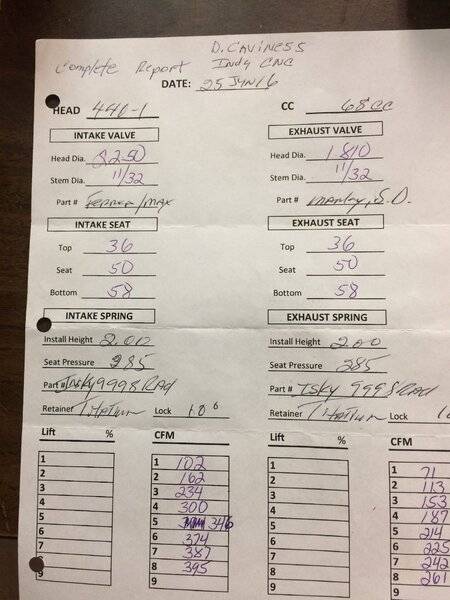 D. Caviness
Complete Report Indy CNC
DATE: 25 JUN 16
HEAD 440-1 CC 68 CC
INTAKE VALVE EXHAUST VALVE
Head Dia. 2.250 Head Dia. 1.810
Stem Dia. 11/32 Stem Dia. 11/32
Part # Ferrea/Max Part # Manley, S.D.
INTAKE SEAT EXHAUST SEAT
Top 36 Top 36
Seat 50 Seat 50
Bottom 58 Bottom 58
INTAKE SPRING EXHAUST SPRING
Install Height 2.00 Install Height 2.00
Seat Pressure 285 Seat Pressure 285
Part# Isky 9998 Rad Part # Isky 9998 Rad
Retainer Lock 10° Retainer Lock
Lift % CFM Lift % CFM
1 1 102 1 1 71
2 2 162 2 2 113
3 3 234 3 3 153
4 4 300 4 4 187
5 5 346 5 5 214
6 6 374 6 6 225
7 7 387 7 7 242
8 8 395 8 8 261
9 9 9 9